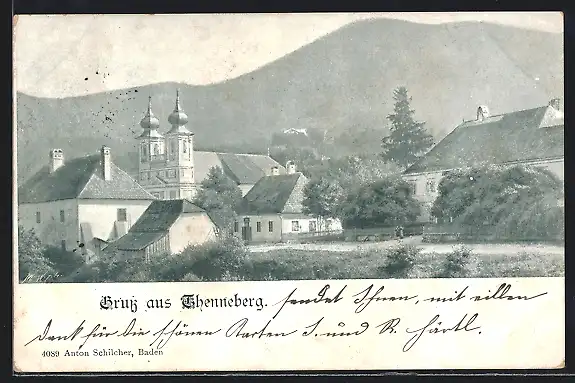 Gruß aus Thenneberg. sendet Ihnen, mit vielen
Dank für die schönen Karten S. und R. Härtl.
4089 Anton Schilcher, Baden